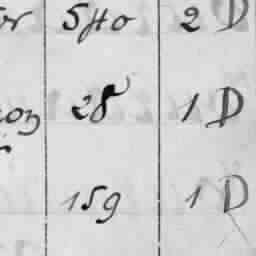 or 540 2 D
on 28 1 D
159 1 D